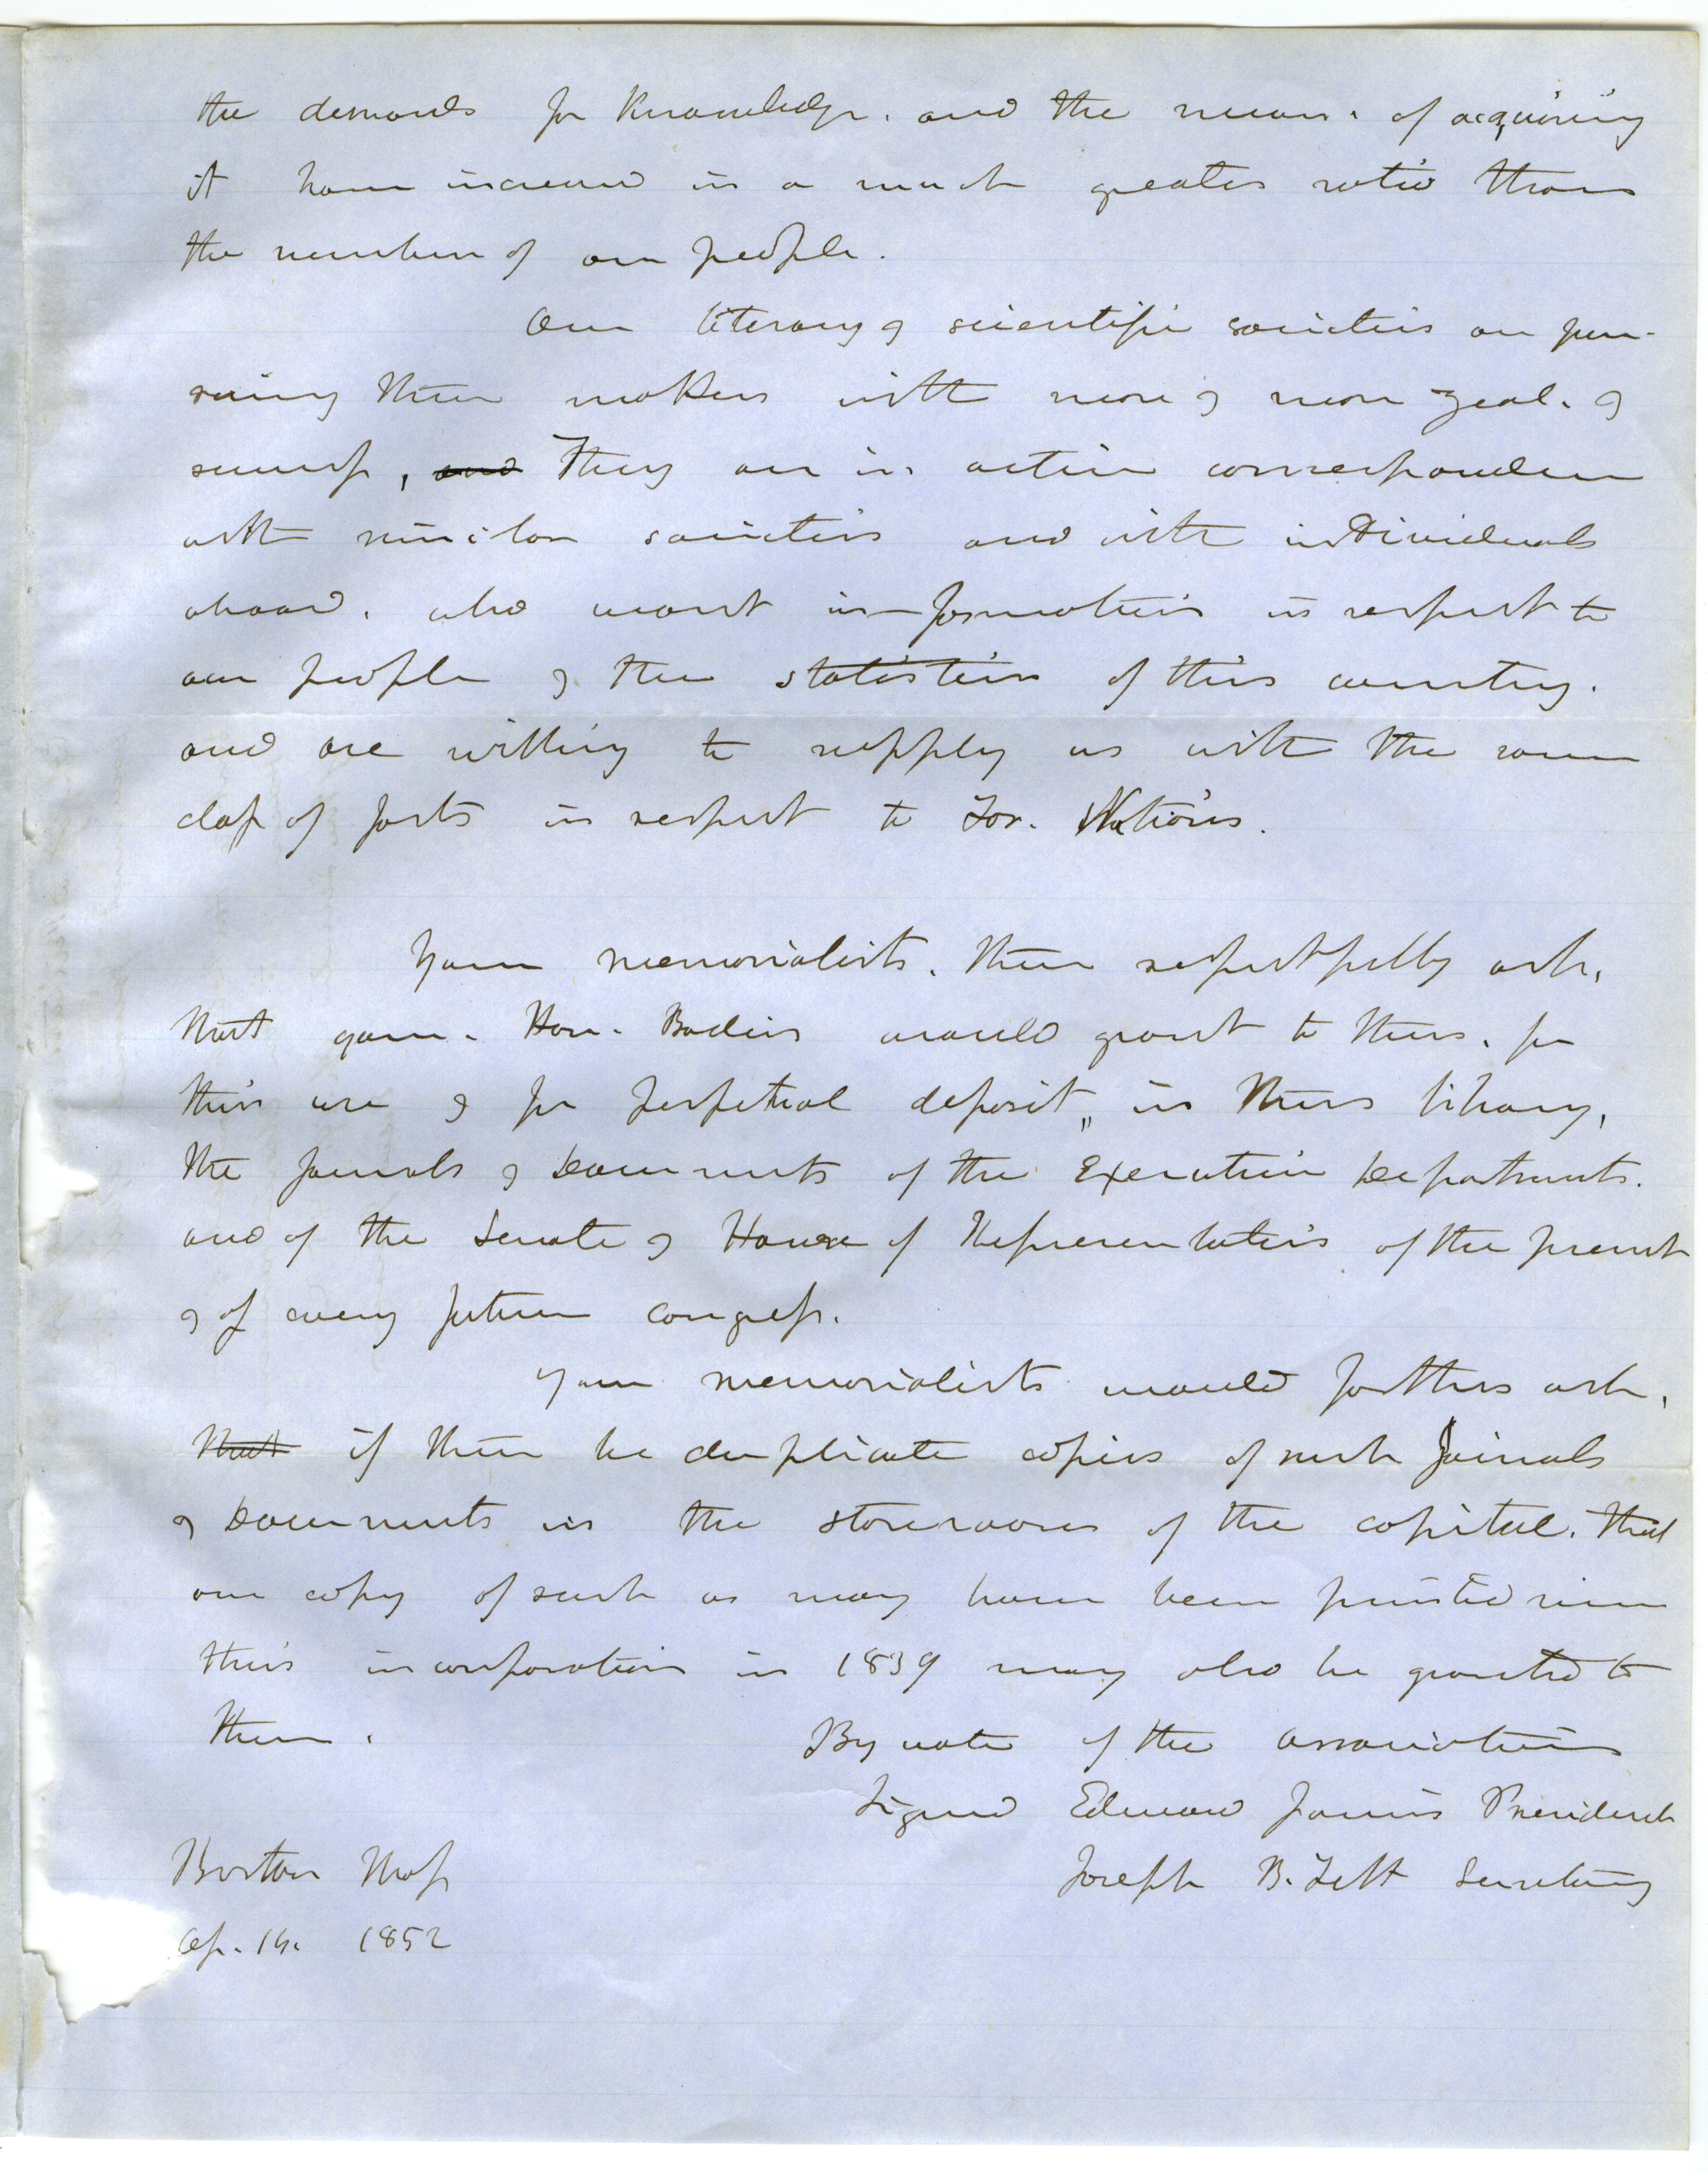 the demands for knowledge. and the means. of acquiring
it have increased in a much greater ratio than
the number of our people.
Our literary & scientific societies are pur-
suing their matters with more & more zeal. &
success, and They are in active correspondence
with similar societies and with individuals
abroad. who want information in respect to
our people & the statistics of this country.
and are willing to supply us with the same
class of facts in respect to For. Nations.
Your memorialists. then respectfully ask,
that your. Hon. Bodies would grant to them. for
their use & for perpetual deposit, in their library,
the Journals & Documents of the Executive Departments.
and of the Senate & House of Representatives of the present
& of every future congress.
Your memorialists would further ask,
that if there be duplicate copies of such Journals
& Documents in the storerooms of the capitol. that
one copy of such as may have been printed since
their incorporation in 1839 may also be granted to
them.
By vote of the association
Signed Edward Jarvis President
Joseph B. Felt Secretary
Boston Mass
Ap. 1852